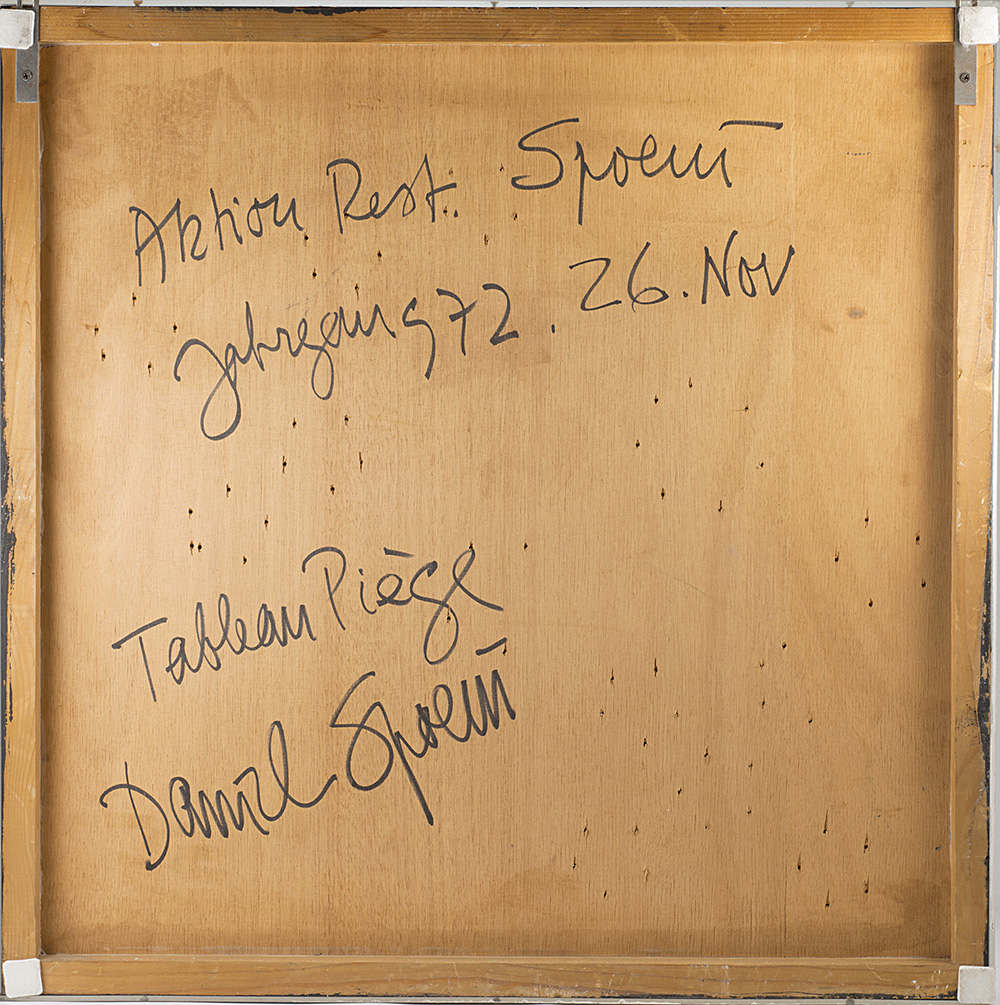 Aktion Rest. Spoerri
Jahrgang 72. 26. Nov
Tableau Piège
Daniel Spoerri